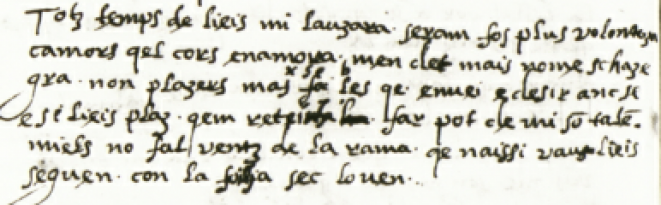 Totz temps de lieis mi lauzara seram fos plus volontera
camors qel cors enamora men det mais nomeschaze
gra. non plazers mas sabes qe enuei e desir anc se
e si lieis plaz. qem far pot de mi son talē.
miels no fal ventz de la rama. qe naissi vau lieis
seguen. con la foilla sec lo ven.